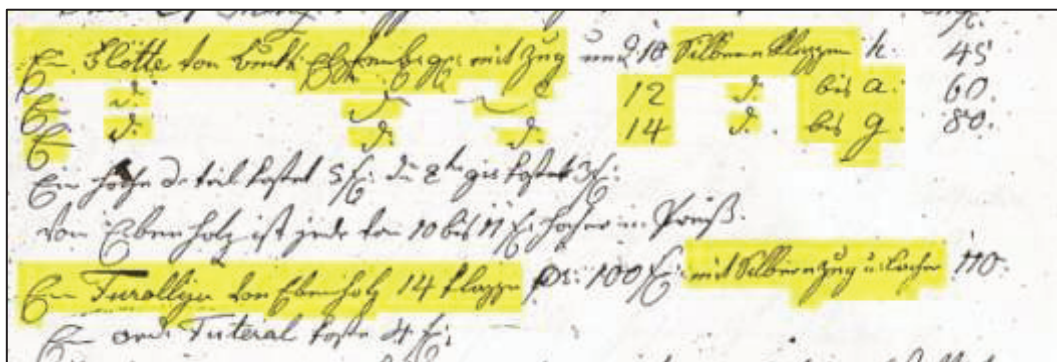 Ein Flötte von Buxb: mit Zug und 10 Silbernen Klappen h. 45
Ein d: d: 12 d: bis a: 60.
Ein d: d: d: 14 d: bis g. 80.
Ein hohe d theil kostet 5 f: gis kostet 3 f:
von Ebenholz ist jede von 10 bis 11 f: hoher im Preiß.
Ein von Ebenholz 14 Klappen pr: 100 f: mit Silbern Zug u: 110.
Ein ord: Futeral 4 f: